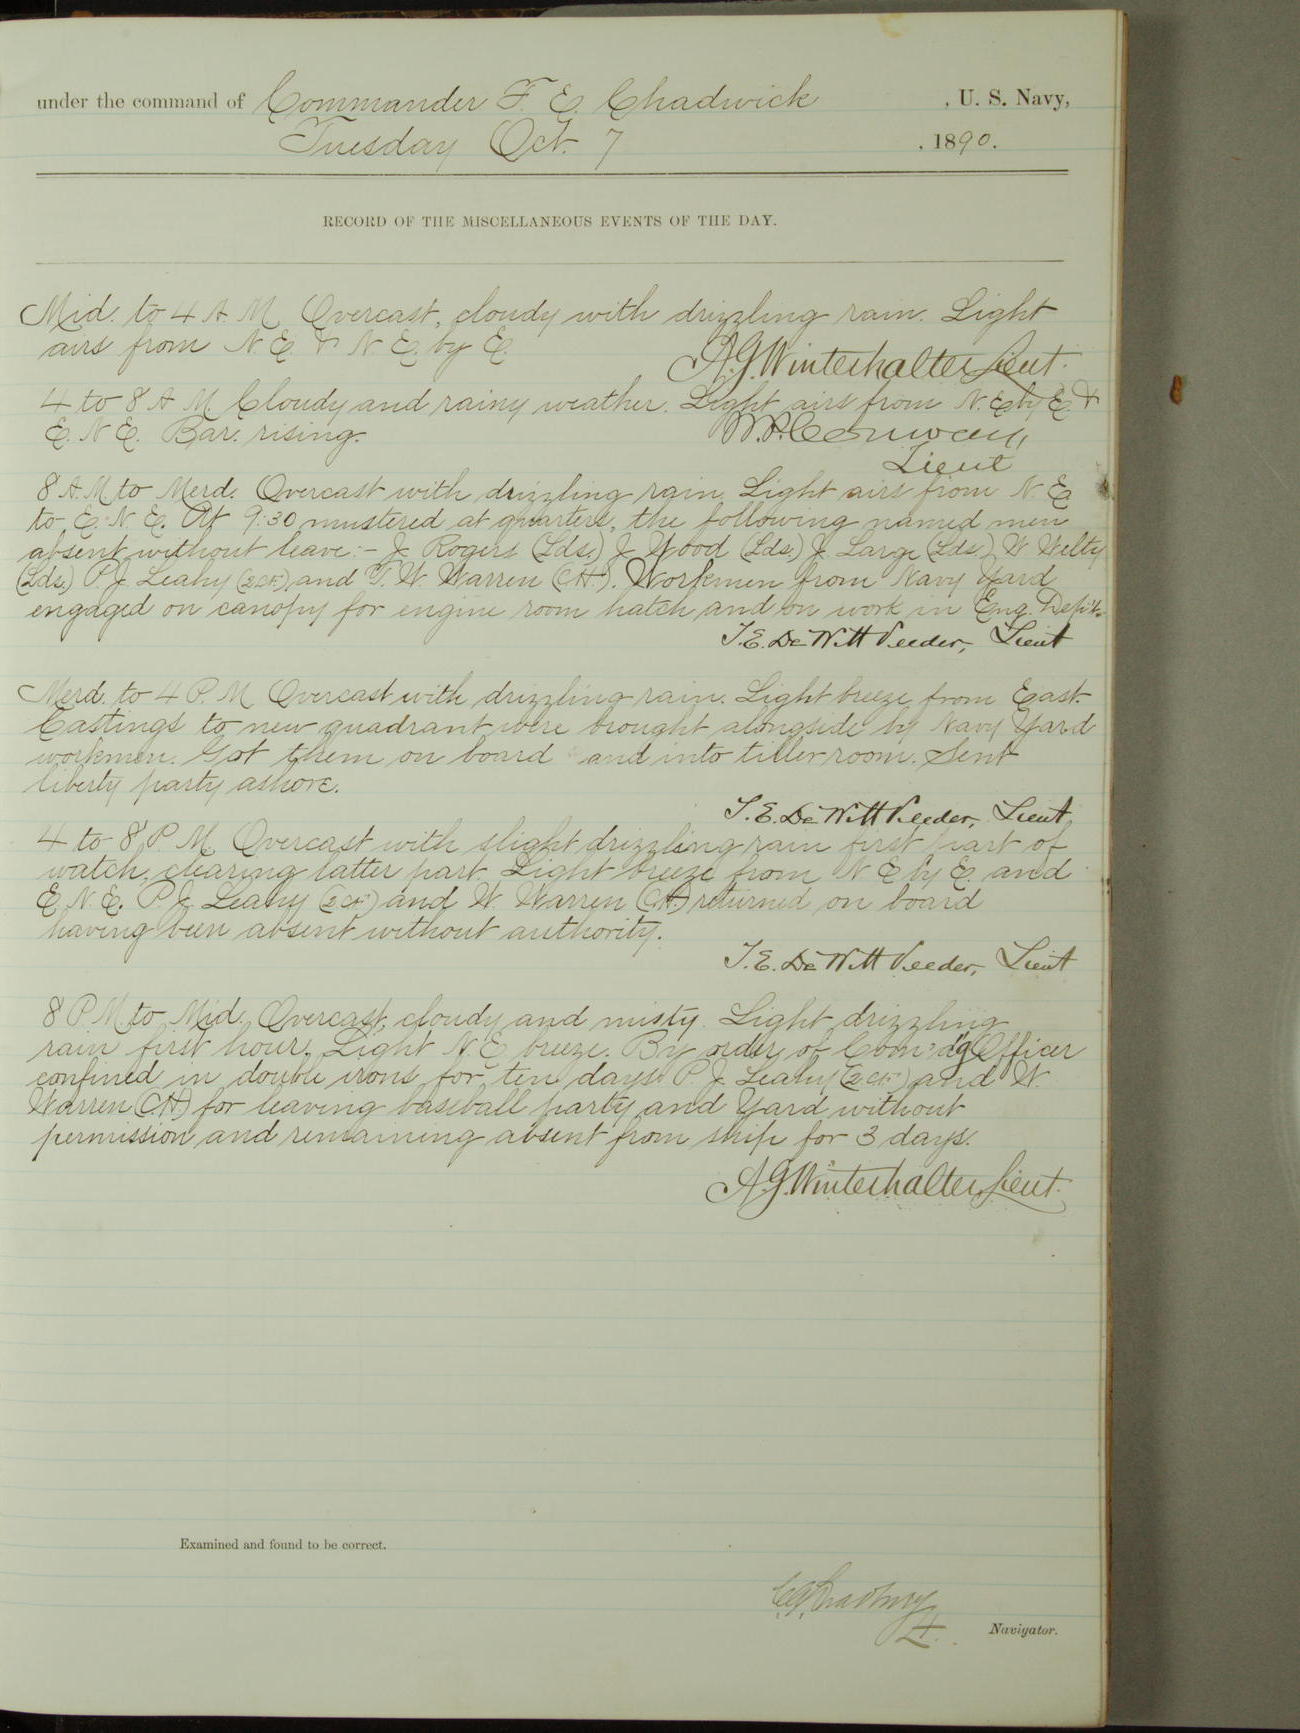 under the command of Commander F. E. Chadwick , U. S. Navy,
Tuesday Oct. 7 , 1890.
RECORD OF THE MISCELLANEOUS EVENTS OF THE DAY.
Mid. to 4 A. M. Overcast, cloudy with drizzling rain. Light
airs from N. E. & N. E. by E.
A. G. Winterhalter, Lieut.
4 to 8 A M Cloudy and rainy weather. Light airs from N. E. by E. &
E. N. E. Bar. rising.
W. P. Conway,
Lieut
8 A.M to Merd. Overcast with drizzling rain. Light airs from N. E.
to E. N. E. At 9:30 mustered at quarters, the following named men
absent without leave:- J. Rogers (Lds.) J. Wood (Lds.) J. Large (Lds.) W. Welty
(Lds.) P. J. Leahy (2 CF.) and T. W. Warren (CH.). Workmen from Navy Yard
engaged on canopy for engine room hatch and on work in Eng. Dep't.
T. E. DeWitt Veeder, Lieut
Merd. to 4 P. M. Overcast with drizzling rain. Light breeze from East.
Castings to new quadrant were brought alongside by Navy Yard
workmen. Got them on board and into tiller room. Sent
liberty party ashore.
T. E. DeWitt Veeder, Lieut,
4 to 8 P. M. Overcast with slight drizzling rain first part of
watch, clearing latter part. Light breeze from N E by E. and
E. N. E. P. J. Leahy (2 CF.) and W. Warren (CH.) returned on board
having been absent without authority.
T. E. DeWitt Veeder, Lieut
8 P.M to Mid. Overcast, cloudy and misty. Light drizzling
rain first hour. Light N. E. breeze. By order of Com'd'g Officer
confined in double irons for ten days P. J. Leahy (2 CF.) and W.
Warren (CH) for leaving baseball party and Yard without
permission and remaining absent from ship for 3 days.
A. G. Winterhalter, Lieut.
Examined and found to be correct.
Lt. Navigator.